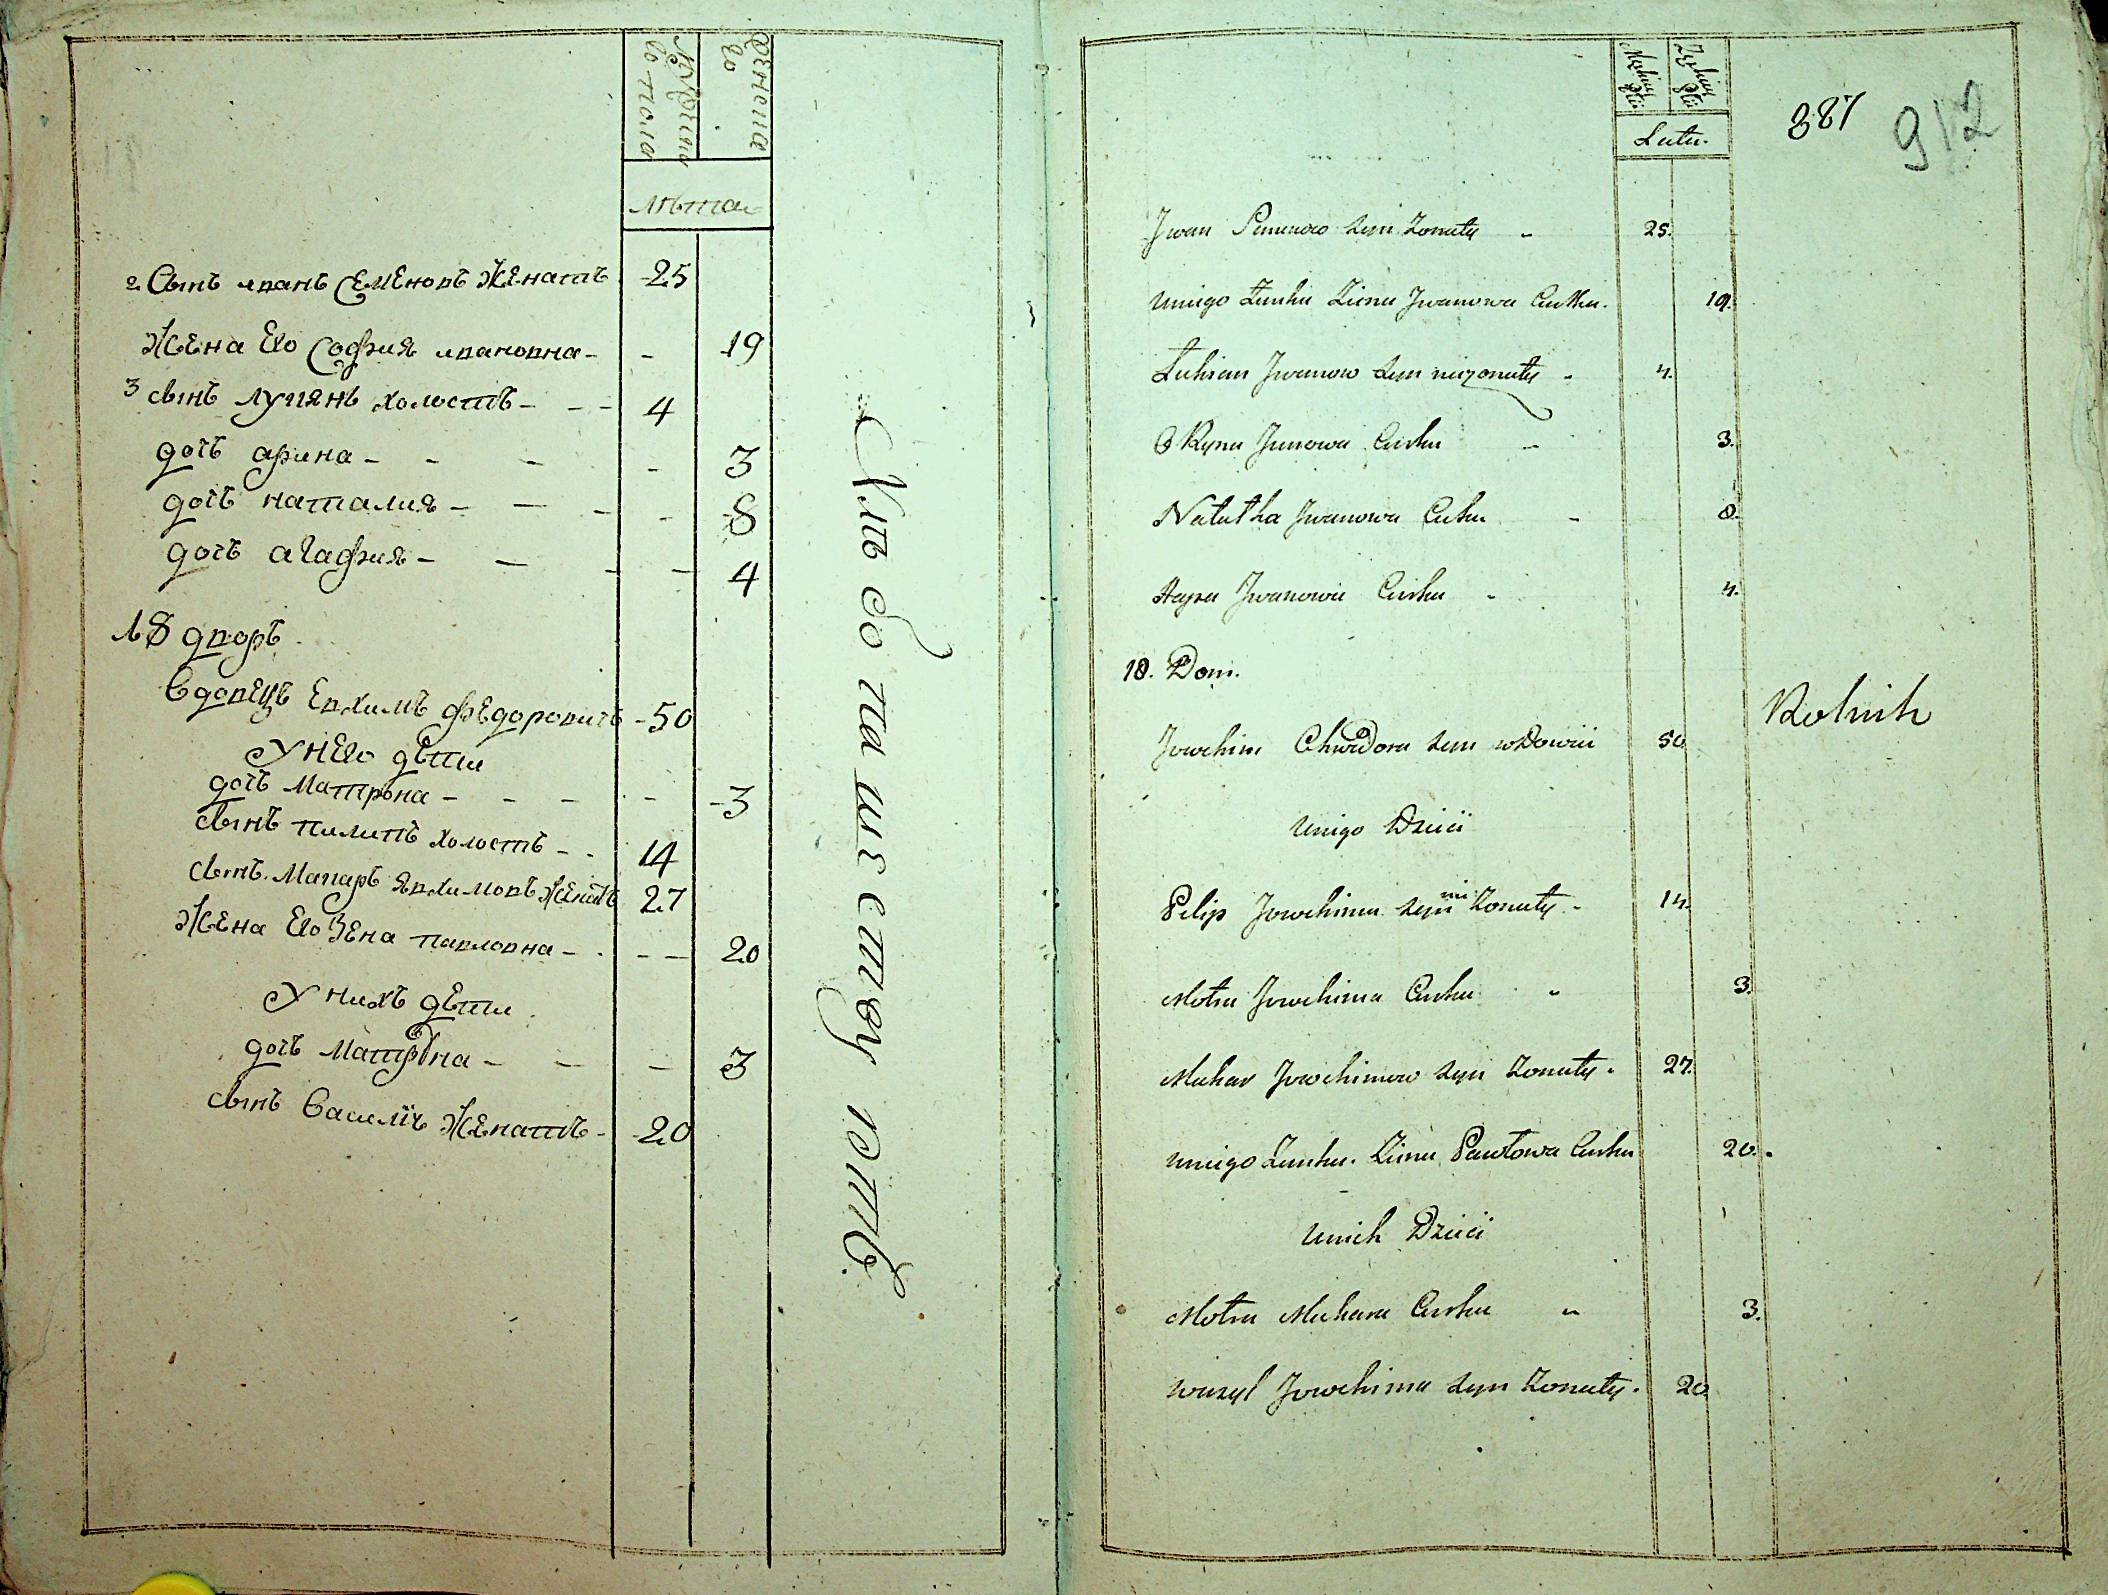 Мужеско
го пола
Женска
го
лѣта
2 Сынъ иванъ Семеновъ Женатъ 25
Жена Его София ивановна - - 19
3 сынъ лукянъ холостъ - - - 4
дочь арина - - - - 3
дочь наталия - - - - 8
дочь агафия - - - - 4
18 дворъ
Вдовецъ Евхимъ федоровичъ - 50
У него дѣти
дочь Матрона - - - - - 3
сынъ пилипъ холостъ - - 14
сынъ Макаръ явхимовъ Женатъ 27
Жена Его Зена павловна - - - - 20
У нихъ дѣти
дочь Матрона - - - 3
сынъ Василїй Женатъ - 20
Хлѣбопашествуютъ
387
912
Latu.
Jwan Semenow syn żonaty 25.
uniego Żonka Zienu Jwanowa Curka. 19.
Łukian Jwanow syn nieżonaty 4.
Jwanowa Curka 3.
Natałka Jwanowa Curka 8.
Jwanowa Curka 4.
18. Dom.
Jowchim Chwedora syn wdowiec 50 Rolnik
unigo Dzieci
Pilip Jowchima syn nie żonaty 14.
Motra Jowchima Curka 3.
Makar Jowchimow syn żonaty 27.
unieigo Żonka. Zienu Pawłowa Curka 20.
unich Dzieci
Motra Makara Curka 3.
Wasyl Jowchima syn żonaty. 20